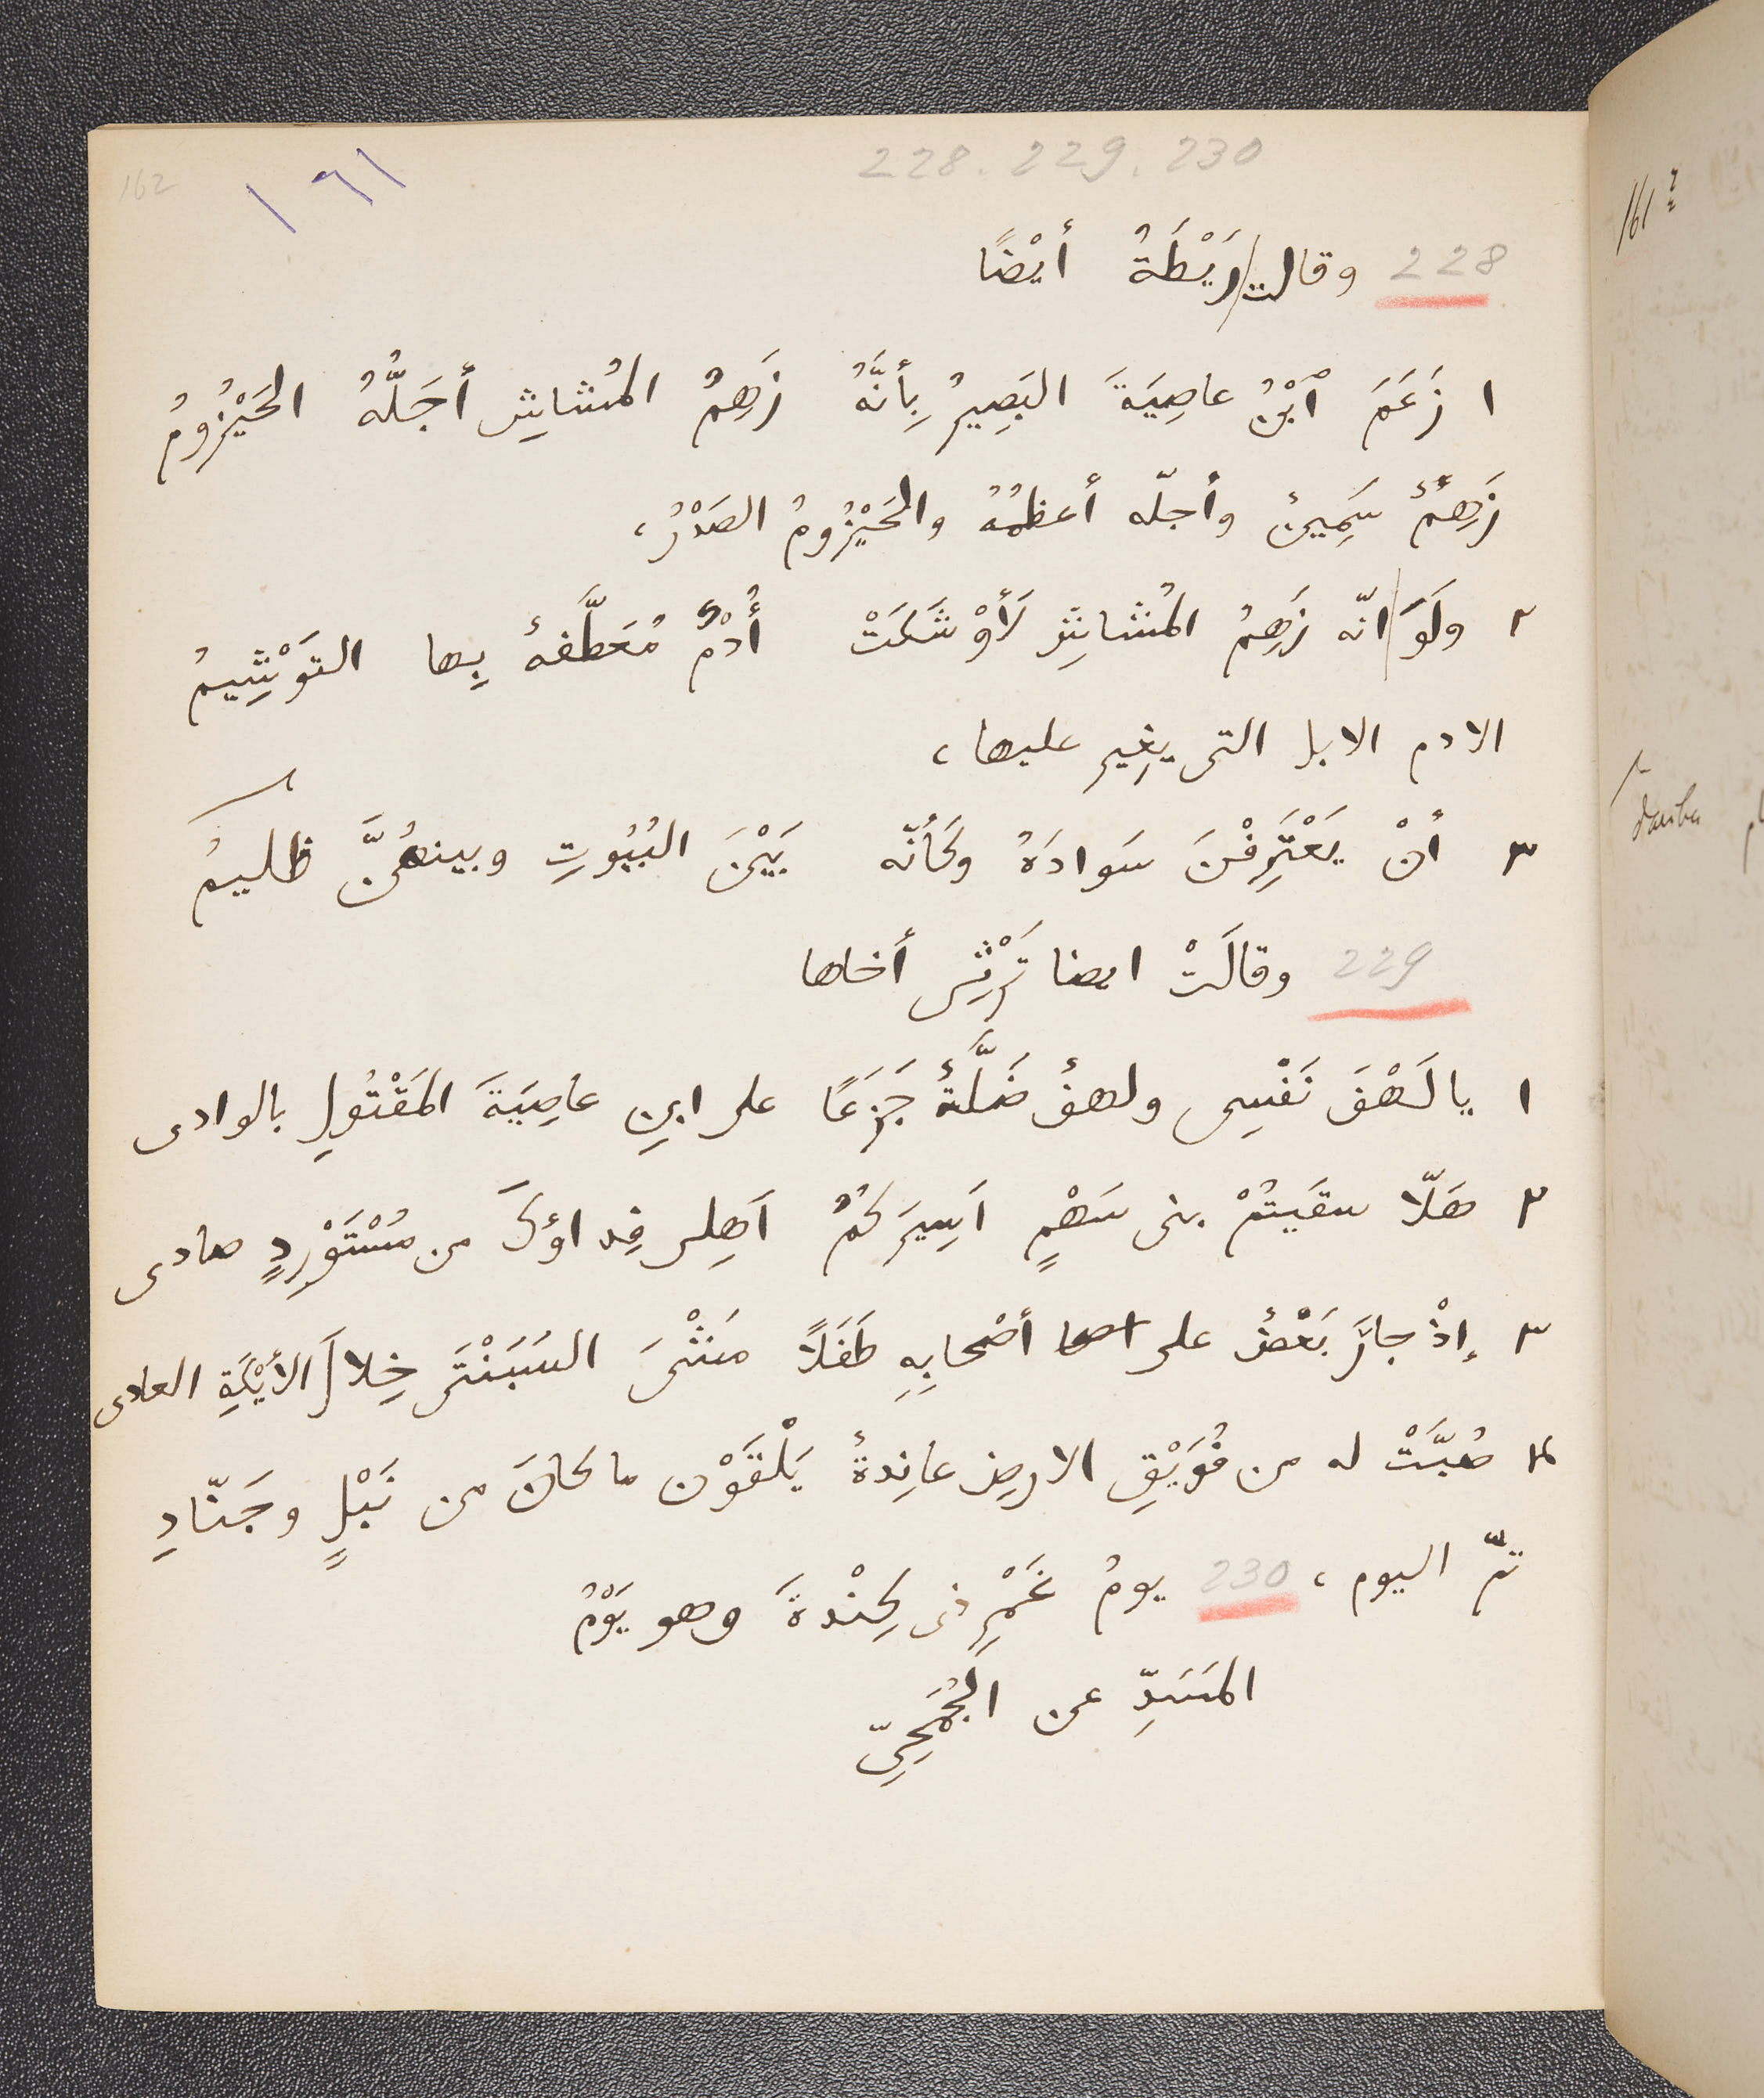 228. 229. 230
162
١٦١
228 وقالت رَيْطَةُ أيْضًا
١ زَعَمَ ٱبْنُ عاصِيَةَ البَصِيرُ بِأنَّهُ زَهِمُ المُشاشِ أجَلُّهُ الحَيْزُومُ
زَهِمٌ سَمِينٌ وأجلّه أعظمُهُ والحَيْزُومُ الصَدْرُ،
٢ ولَوَ انّه زَهِمُ المُشاشِ لَأوْشَكَتْ أُدْمٌ مُعَطَّفةٌ بِها التوَشِيمُ
الادم الابل التى يغِير عليها،
٣ أنْ يَعْتَرِفْنَ سَوادَهُ وكَأنّه بَيْنَ البُيُوتِ وبينهُنَّ ظليمُ
229 وقالَتْ ايضا تَرْثِى أخاها
١ يا لَهْفَ نَفْسِى ولهفٌ ضَلَّةٌ جَزَعًا على ابنِ عاصِيَةَ المَقْتُولِ بالوادى
٢ هَلّا سقَيتُمْ بنى سَهْمٍ اَسِيرَكُمُ اَهلِى فِداؤكَ من مُسْتَوْرِدٍ صادى
٣ إذْ جازَ بَعْضٌ على أصْحابِهِ طَفَلًا مَشْىَ السَبَنْتَى خِلالَ الأيْكَةِ العادى
٤ صُبَّتْ له من فُوَيْقِ الارضِ عانِدةٌ يَلْقَوْن ما كانَ من نَبْلٍ وجَنّادِ
تمّ اليوم، 230 يومُ غَمْرِ ذى كِنْدةَ وهو يَوْمُ
المَسَدِّ عن الجُمَحِىّ
161 2
darba